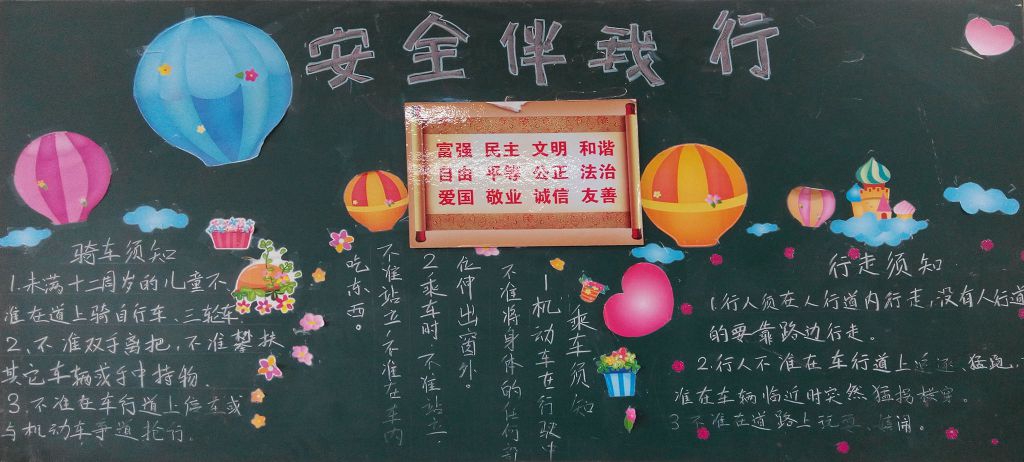 安全伴我行
富强 民主 文明 和谐
自由 平等 公正 法治
爱国 敬业 诚信 友善
骑车须知
1.未满十二周岁的儿童不
准在道上骑自行车、三轮车.
2、不准双手离把,不准攀扶
其它车辆或手中持物.
3.不准在车行道上
与机动车争道抢行.
乘车须知
1机动车在行驶中
不准将身体的任何部
位伸出窗外。
2乘车时,不准站立
不准站立不准在车内
吃东西。
行走须知
1.行人须在人行道内行走,没有人行道
的要靠路边行走。
2行人不准在车行道上追逐、猛跑,
准在车辆临近时突然猛拐横穿。
3不准在道路上玩耍、嬉闹。